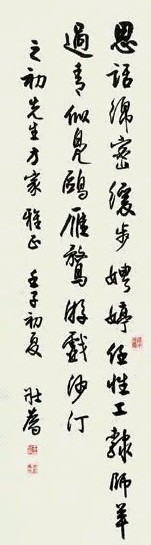 思話綿密緩步娉婷任性工隸師羊
過青似鳧鷗雁鶩游戲沙汀
之初先生方家雅正 壬子初夏 壯暮